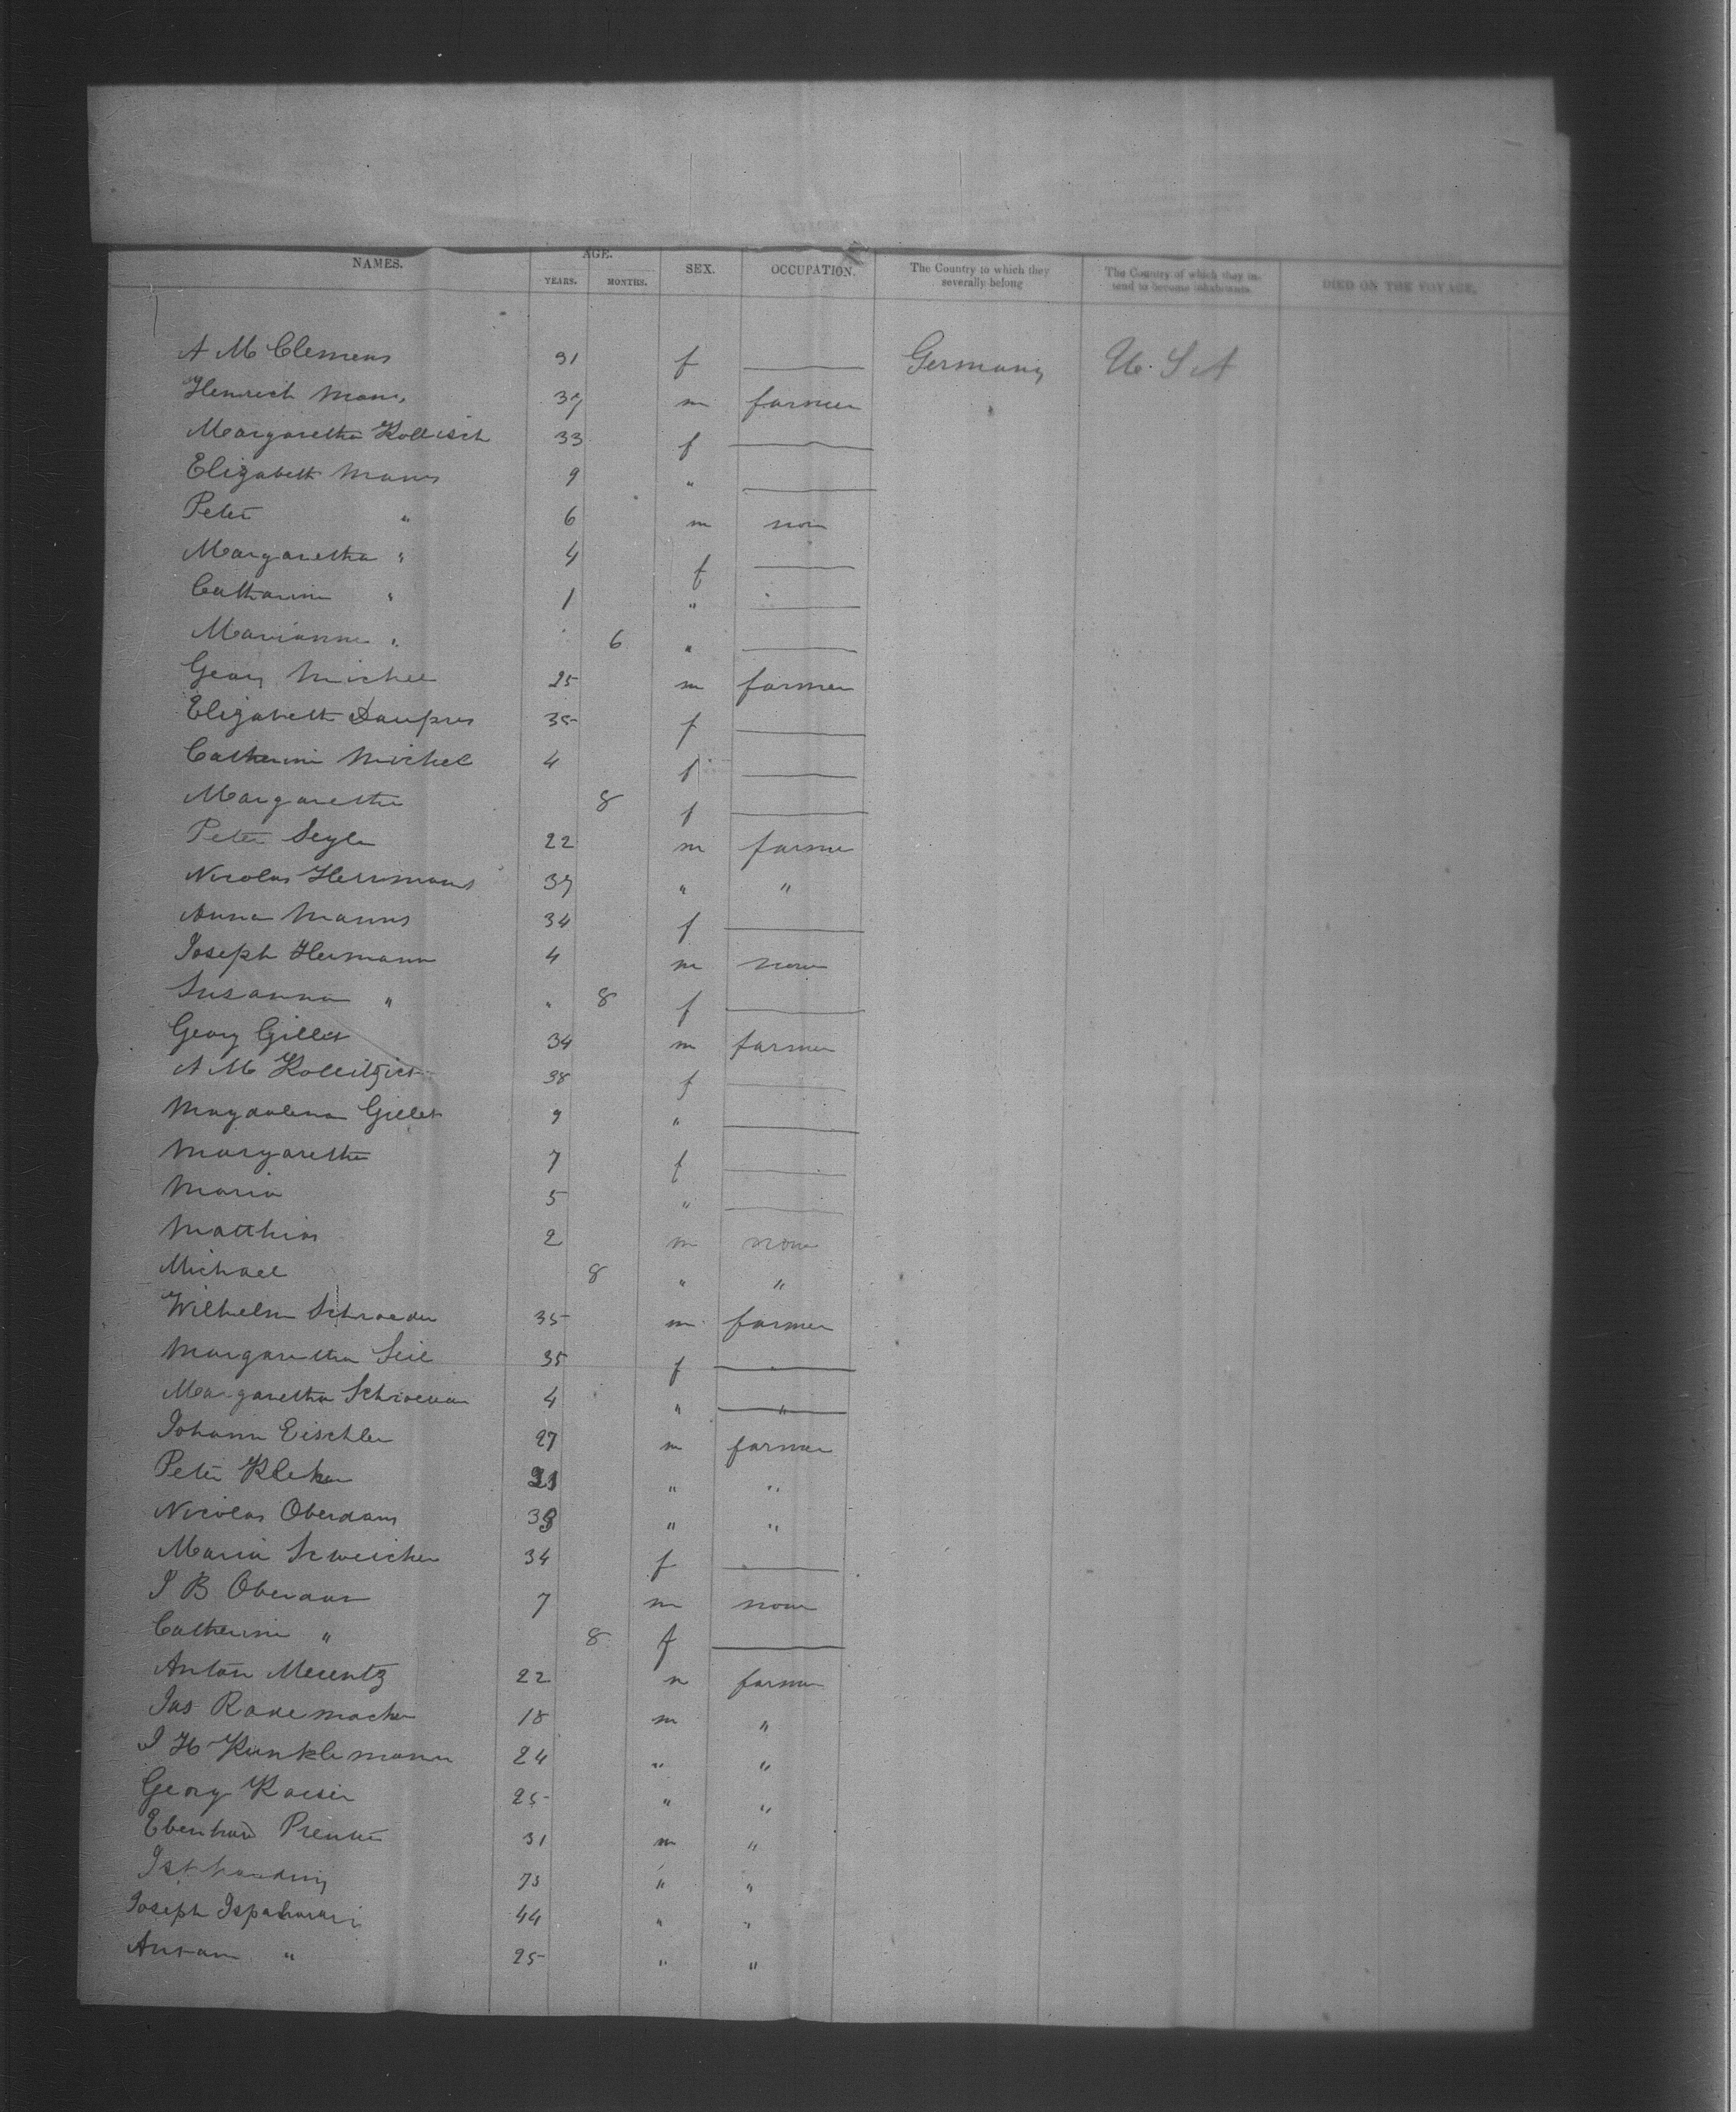 NAMES. AGE. SEX. OCCUPATION. The Country to which they severally belong The Country of which they intend to become inhabitants. DIED ON THE VOYAGE.
YEARS. MONTHS.
A M Clemens 31 f — Germany U. S. A
Heinrich 37 m farmer
Margaretha Kollisch 33 f —
Elizabeth Manns 9 " —
Peter " 6 m non
Margaretha " 4 f —
Catharine " 1 " —
Marianne " 6 " —
Georg Michel 25 m farmer
Elizabeth 35 f —
Catherine Michel 4 f —
Margaretha 8 f —
Peter Seyler 22 m farmer
Nicolas Herrmanns 37 " "
Anna Manns 34 f —
Joseph Hermann 4 m none
Susanna " " 8 f —
Georg Gillet 34 m farmer
A M 38 f —
Magdalena Gillet 9 " —
Margaretha 7 f —
Maria 5 " —
Matthias 2 m none
Michael 8 " "
Wilhelm Schroeder 35 m farmer
Margaretha Seil 35 f —
Margaretha Schroeder 4 " —
Johann Eischler 27 m farmer
Peter " "
Nicolas Oberdam " "
Maria Schweicher 34 f —
J B Oberdam 7 m none
Catherine " 8 f —
Anton Meuentz 22 m farmer
Jas Rademacher 18 m "
J H Kunklemann 24 " "
Georg Kaeser 25 " "
Eberhard 31 m "
73 " "
Joseph 44 " "
" 25 " "